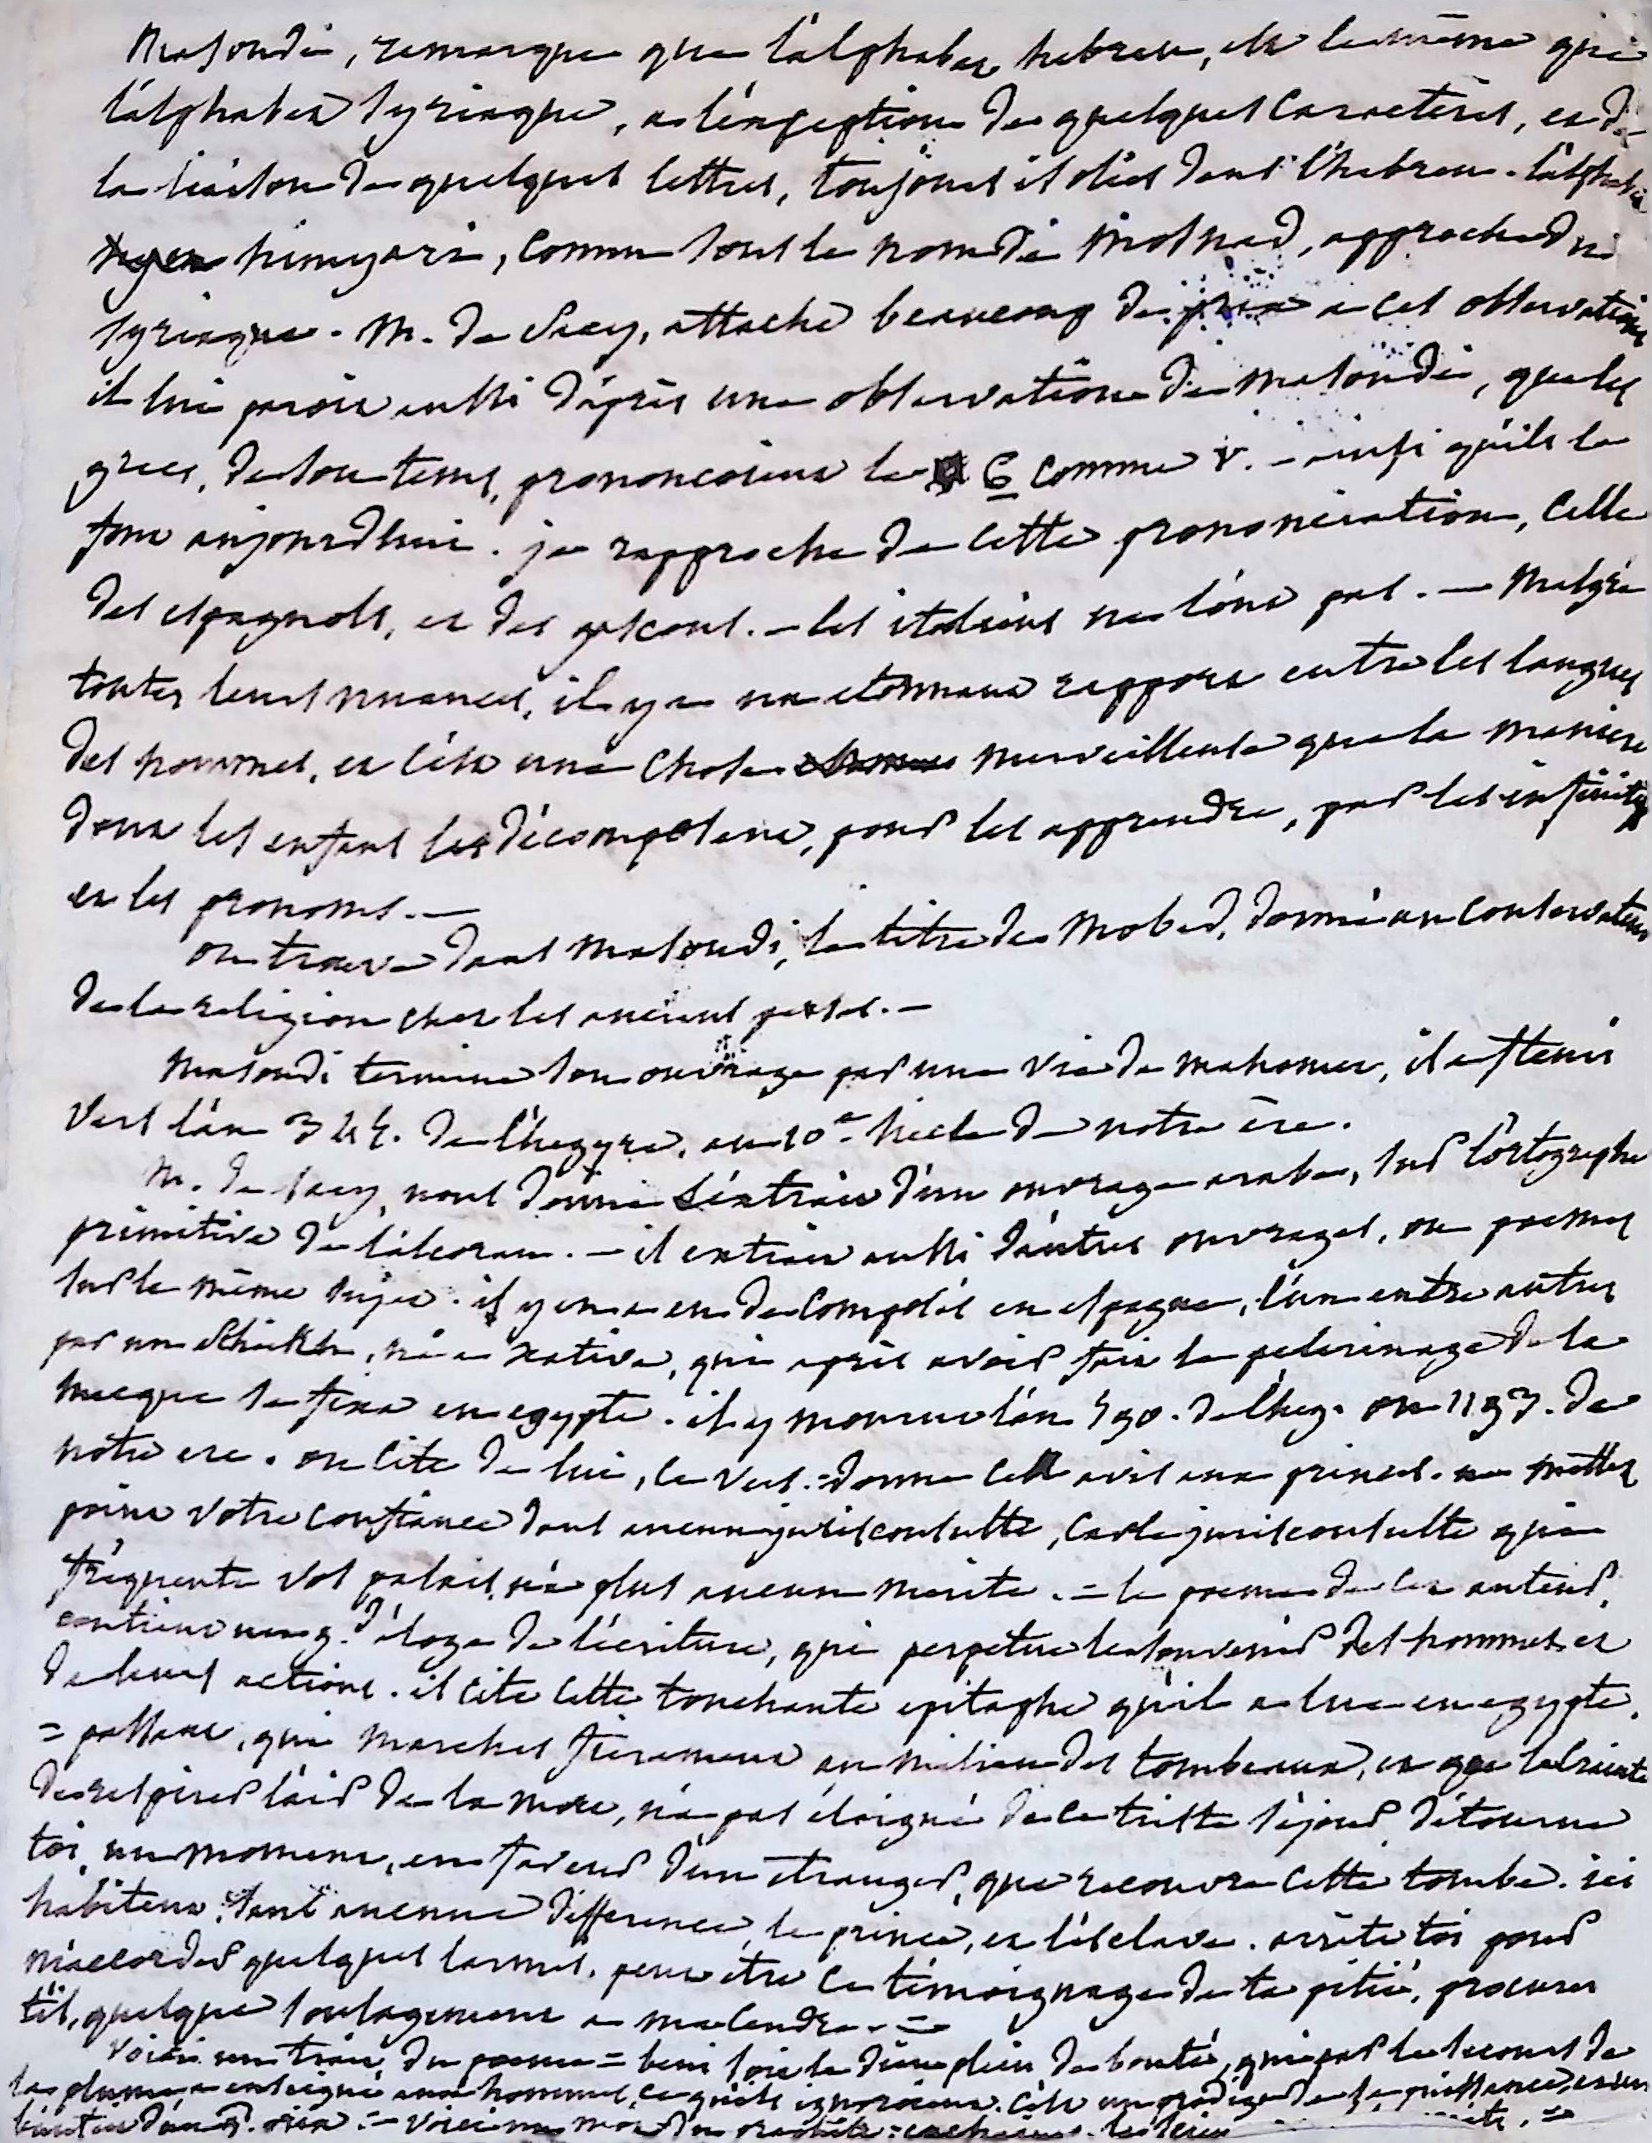 Masoudi, remarque que l'alphabet hebreu, est le même que
l'alphabet syriaque, a l'exception de quelques caractères, et de
la liaison de quelques lettres, toujours isolées dans l'hebreu. l'alphabet
himyari, connu sous le nom de Mosnad, approche du
syriaque. M. de Sacy, attache beaucoup de prix a ces observations
il lui paroit aussi d'après une observation de Masoudi, que les
grecs, de son tems, prononcoient le б comme v. - ainsi qu'ils le
font aujourdhui. je rapproche de cette prononciation, celle
des espagnols, et des gascons. - les italiens ne l'ont pas. - Malgré
toutes leurs nuances, il y a un etonnant rapport entre les langues
des hommes, et c'est une chose merveilleuse que la maniere
dont les enfans les décomposent, pour les apprendre, par les infinitifs
et les pronoms. -
on trouve dans Masoudi, le titre de Mobed, donné au conservateur
de la religion chez les anciens perses. -
Masoudi termine son ouvrage par une vie de mahomet, il
vers l'an 344. de l'hegyre, au 10e siecle de notre ère.
M. de Sacy, nous donne l'extrait d'un ouvrage arabe, sur l'ortographe
primitive de l'alcoran. - il extrait aussi d'autres ouvrages, ou poemes
sur le même sujet. il y en a eu de composés en espagne, l'un entre autres
par un Scheikh, né a Xativa, qui après avoir fait le pelerinage de la
mecque se fixa en egypte. il y mourut l'an 590. de l'heg. ou 1193. de
notre ere. on cite de lui, ce vers. = donne cet avis aux princes. ne mettez
point votre confiance dans aucun jurisconsulte, car le jurisconsulte qui
fréquente vos palais, n'a plus aucun merite. = le poeme de cet auteur,
contient un g.d éloge de l'écriture, qui perpetue le souvenir des hommes et
de leurs actions. il cite cette touchante epitaphe qu'il a lue en egypte.
= passant, qui marches fierement au milieu des tombeaux, et que la crainte
de respirer l'air de la mort, n'a pas éloigné de ce triste séjour, détourne
toi, un moment, en faveur d'un etranger, que recouvre cette tombe. ici
habitent, sans aucune difference, le prince, et l'esclave. arrête toi pour
m'accorder quelques larmes. peut etre ce témoignage de ta pitié, procurer
t'il, quelque soulagement a ma cendre. =
Voici un trait du poeme = beni soit le dieu plein de bonté, qui par le secours de
la plume a enseigné aux hommes, ce qu'ils ignoroient. c'est un prodige de sa puissance, et un
= voici un mot du